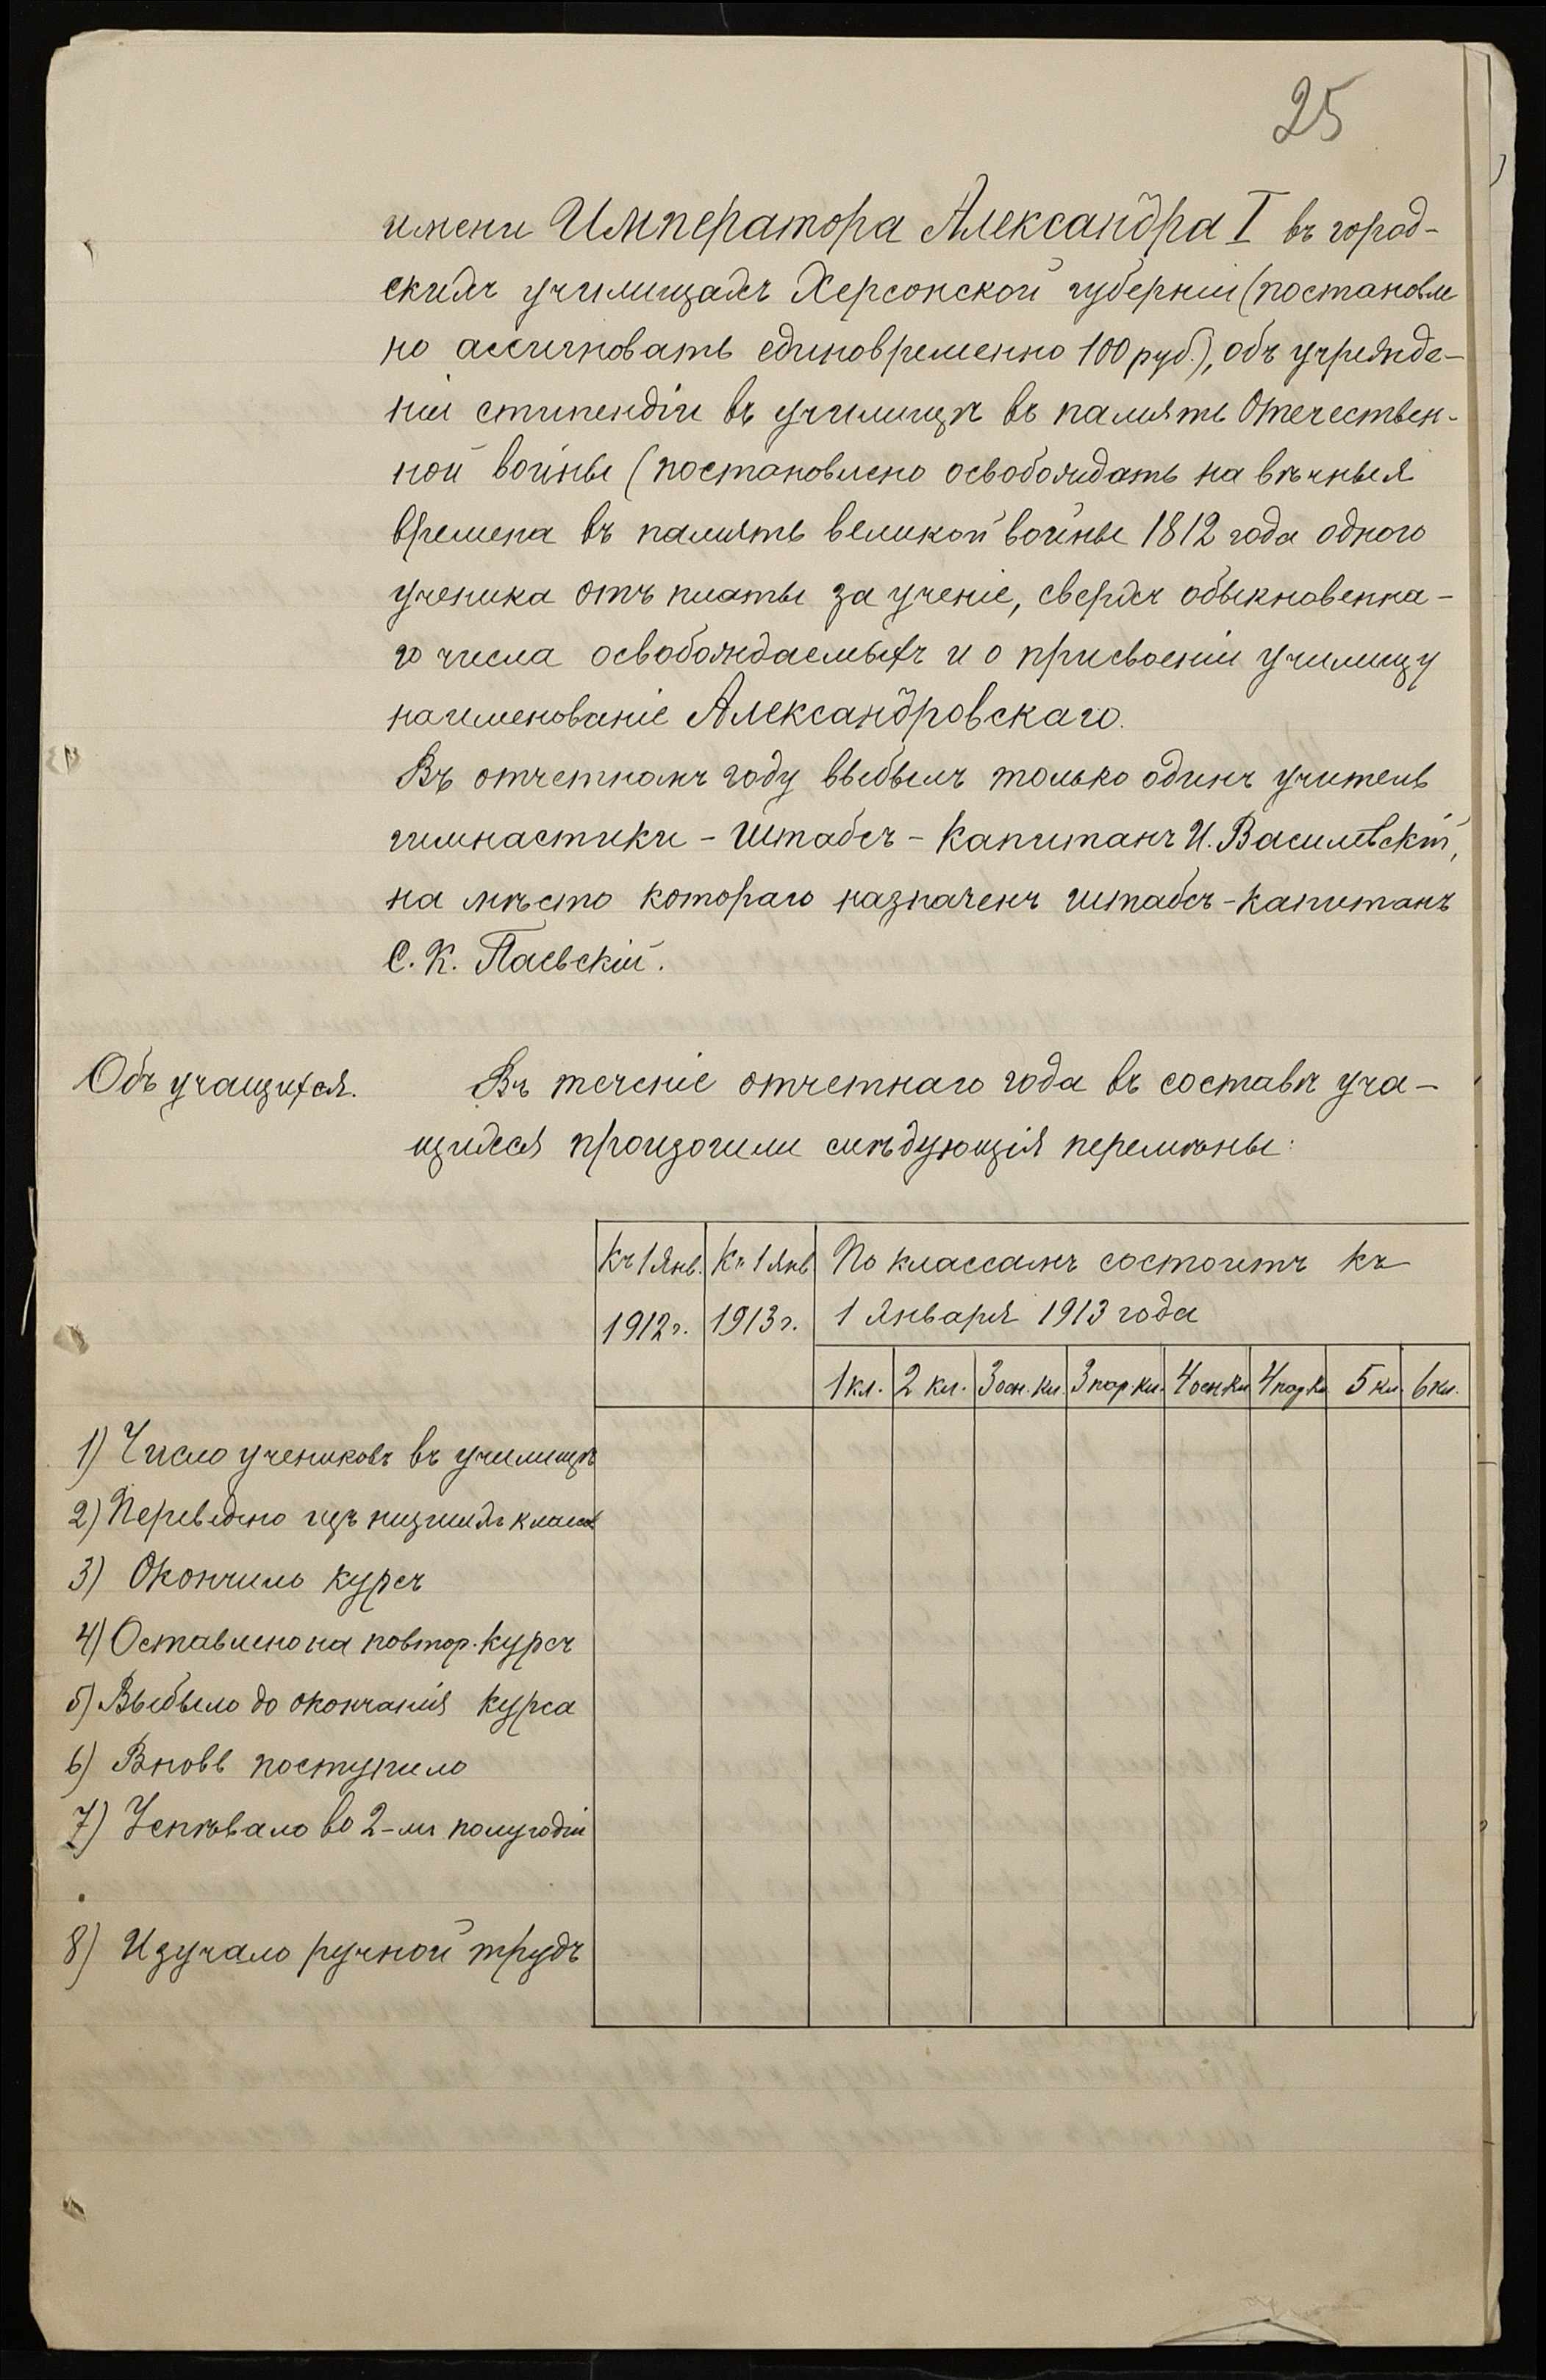 25
имени Императора Александра I въ город-
скихъ училищахъ Херсонской губерніи (постановле
но ассигновать единовременно 100 руб.), объ учрежде-
ніи стипендіи въ училищѣ въ память Отечествен-
ной войны (постановлено освобождать на вѣчныя
времена въ память великой войны 1812 года одного
ученика отъ платы за ученіе, сверхъ обыкновенна-
го числа освобождаемыхъ и о присвоеніи училищу
наименованіе Александровскаго.
Въ отчетномъ году выбылъ только одинъ учитель
гимнастики - штабсъ - капитанъ И. Василевскій,
на мѣсто котораго назначенъ штабсъ-капитанъ
С. К. Паевскій.
Объ учащихся.
Въ теченіе отчетнаго года въ составѣ уча-
щихся произошли слѣдующія перемѣны:
Къ 1 Янв. 1912 г.
Къ 1 Янв 1913 г.
По классамъ состоитъ къ
1 Января 1913 года
1 кл. 2 кл. 3 осн. кл. 3 пар. кл. 4 осн кл 4 пар кл 5 кл. 6 кл.
1) Число учениковъ въ училищѣ
2) Переведено изъ низшихъ классов
3) Окончило курсъ
4) Оставлено на повтор. курсъ
5) Выбыло до окончанія курса
6) Вновь поступило
7) Успѣвало во 2-мъ полугодіи
8) Изучало ручной трудъ